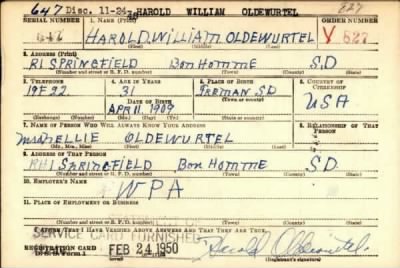 647 Disc. 11-24 HAROLD WILLIAM OLDEWURTEL 827
SERIAL NUMBER 1. NAME (Print) ORDER NUMBER
647 HAROLD WILLIAM OLDEWURTEL V 827
(First) (Middle) (Last)
2. ADDRESS (Print)
R1 SPRINGFIELD Bon Homme S.D
(Number and street or R. F. D. number) (Town) (County) (State)
3. TELEPHONE 4. AGE IN YEARS 5. PLACE OF BIRTH 6. COUNTRY OF CITIZENSHIP
19F22 31
DATE OF BIRTH USA
APR 11 1909
(Mo.) (Day) (Yr.) (State or country)
7. NAME OF PERSON WHO WILL ALWAYS KNOW YOUR ADDRESS 8. RELATIONSHIP OF THAT PERSON
Mrs NELLIE OLDEWURTEL
(Mr., Mrs., Miss) (First) (Middle) (Last)
9. ADDRESS OF THAT PERSON
SPRINGFIELD Bon Homme S.D.
(Number and street or R. F. D. number) (Town) (County) (State)
10. EMPLOYER'S NAME
WPA
11. PLACE OF EMPLOYMENT OR BUSINESS
(Number and street or R. F. D. number) (Town) (County) (State)
I AFFIRM THAT I HAVE VERIFIED ABOVE ANSWERS AND THAT THEY ARE TRUE.
SERVICE CARD FURNISHED
REGISTRATION CARD FEB 24 1950 Harold Oldewurtel
D. S. S. Form 1 (Registrant's signature)